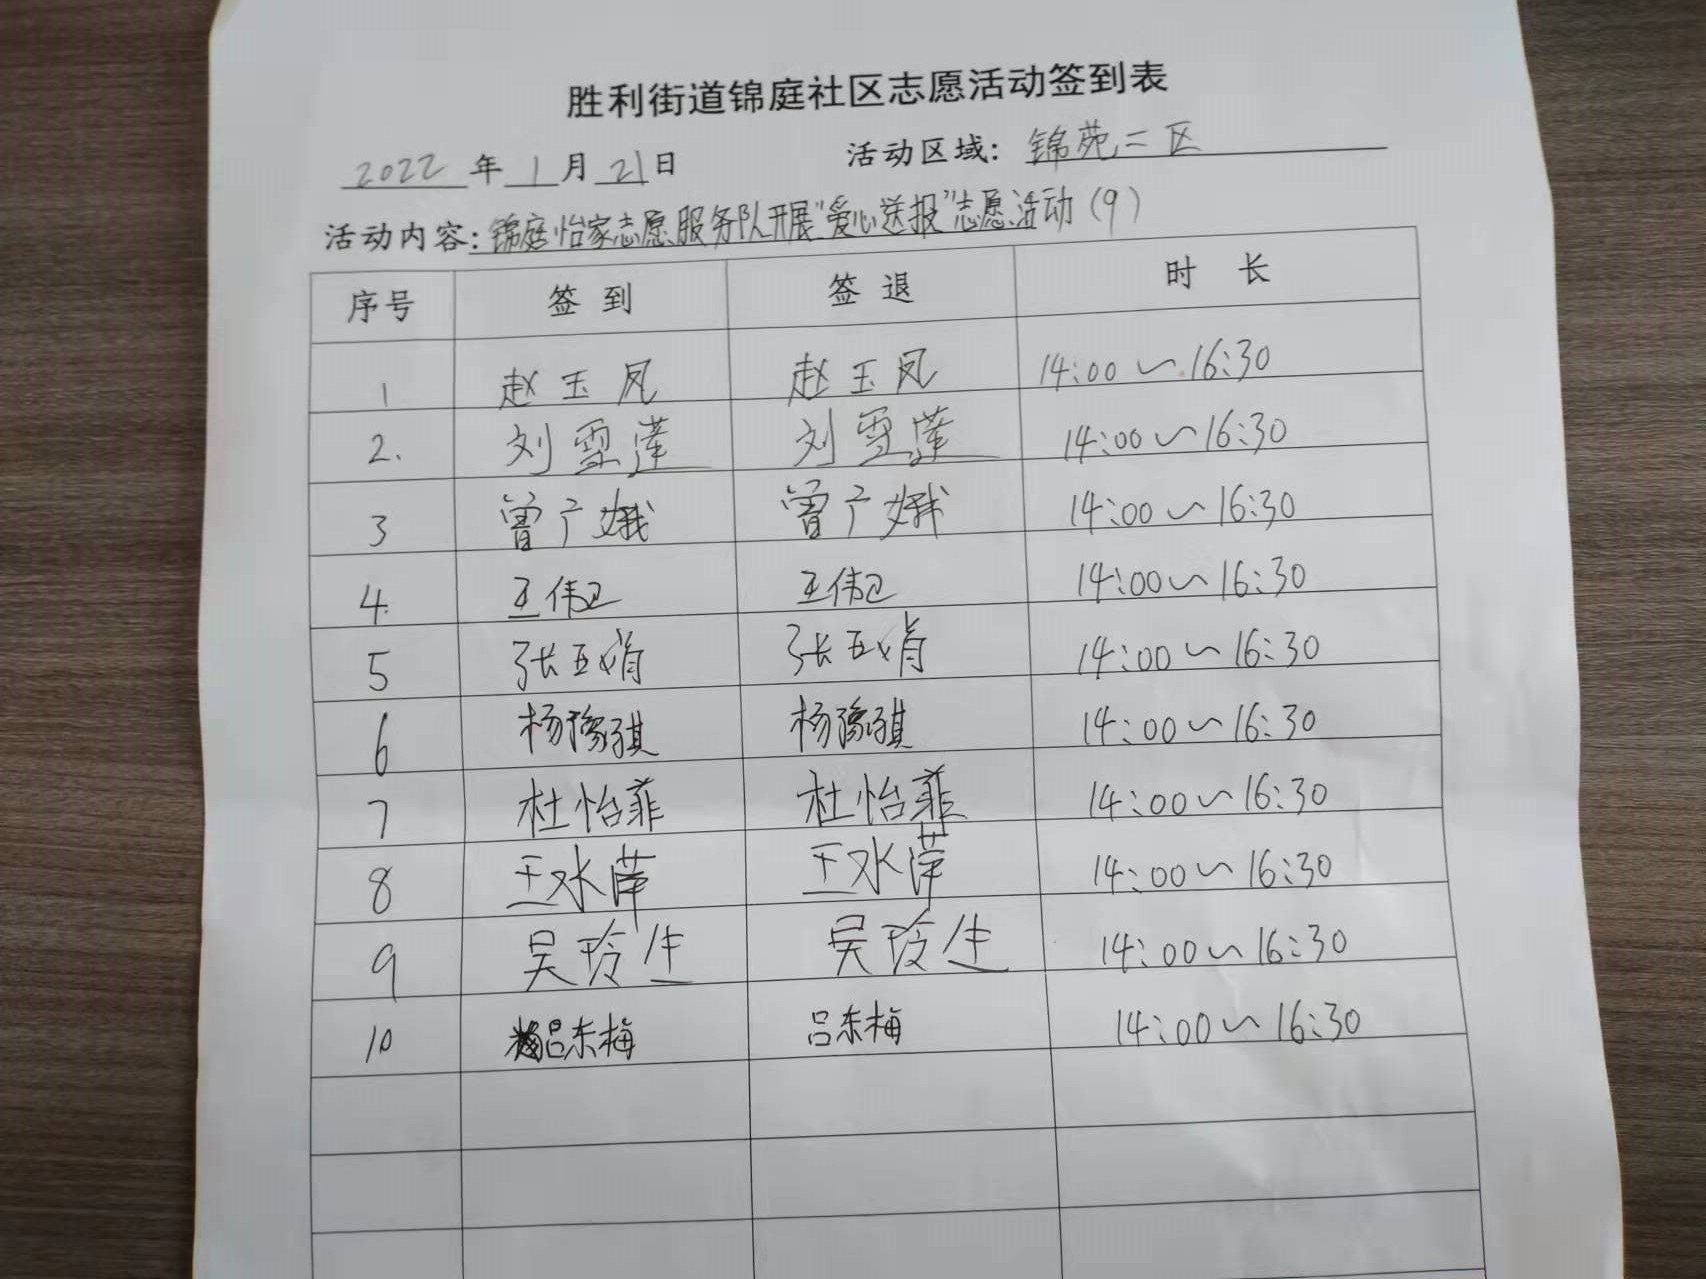 胜利街道锦庭社区志愿活动签到表
2022年1月21日 活动区域：锦苑二区
活动内容：锦庭怡家志愿服务队开展"爱心送报"志愿活动（9）
序号 签到 签退 时长
1 赵玉凤 赵玉凤 14:00～16:30
2. 刘雪莲 刘雪莲 14:00～16:30
3 曾广娥 曾广娥 14:00～16:30
4. 王伟卫 王伟卫 14:00～16:30
5 张五娟 张五娟 14:00～16:30
6 杨豫骐 杨豫骐 14:00～16:30
7 杜怡菲 杜怡菲 14:00～16:30
8 王水萍 王水萍 14:00～16:30
9 吴玲生 吴玲生 14:00～16:30
10 吕东梅 吕东梅 14:00～16:30